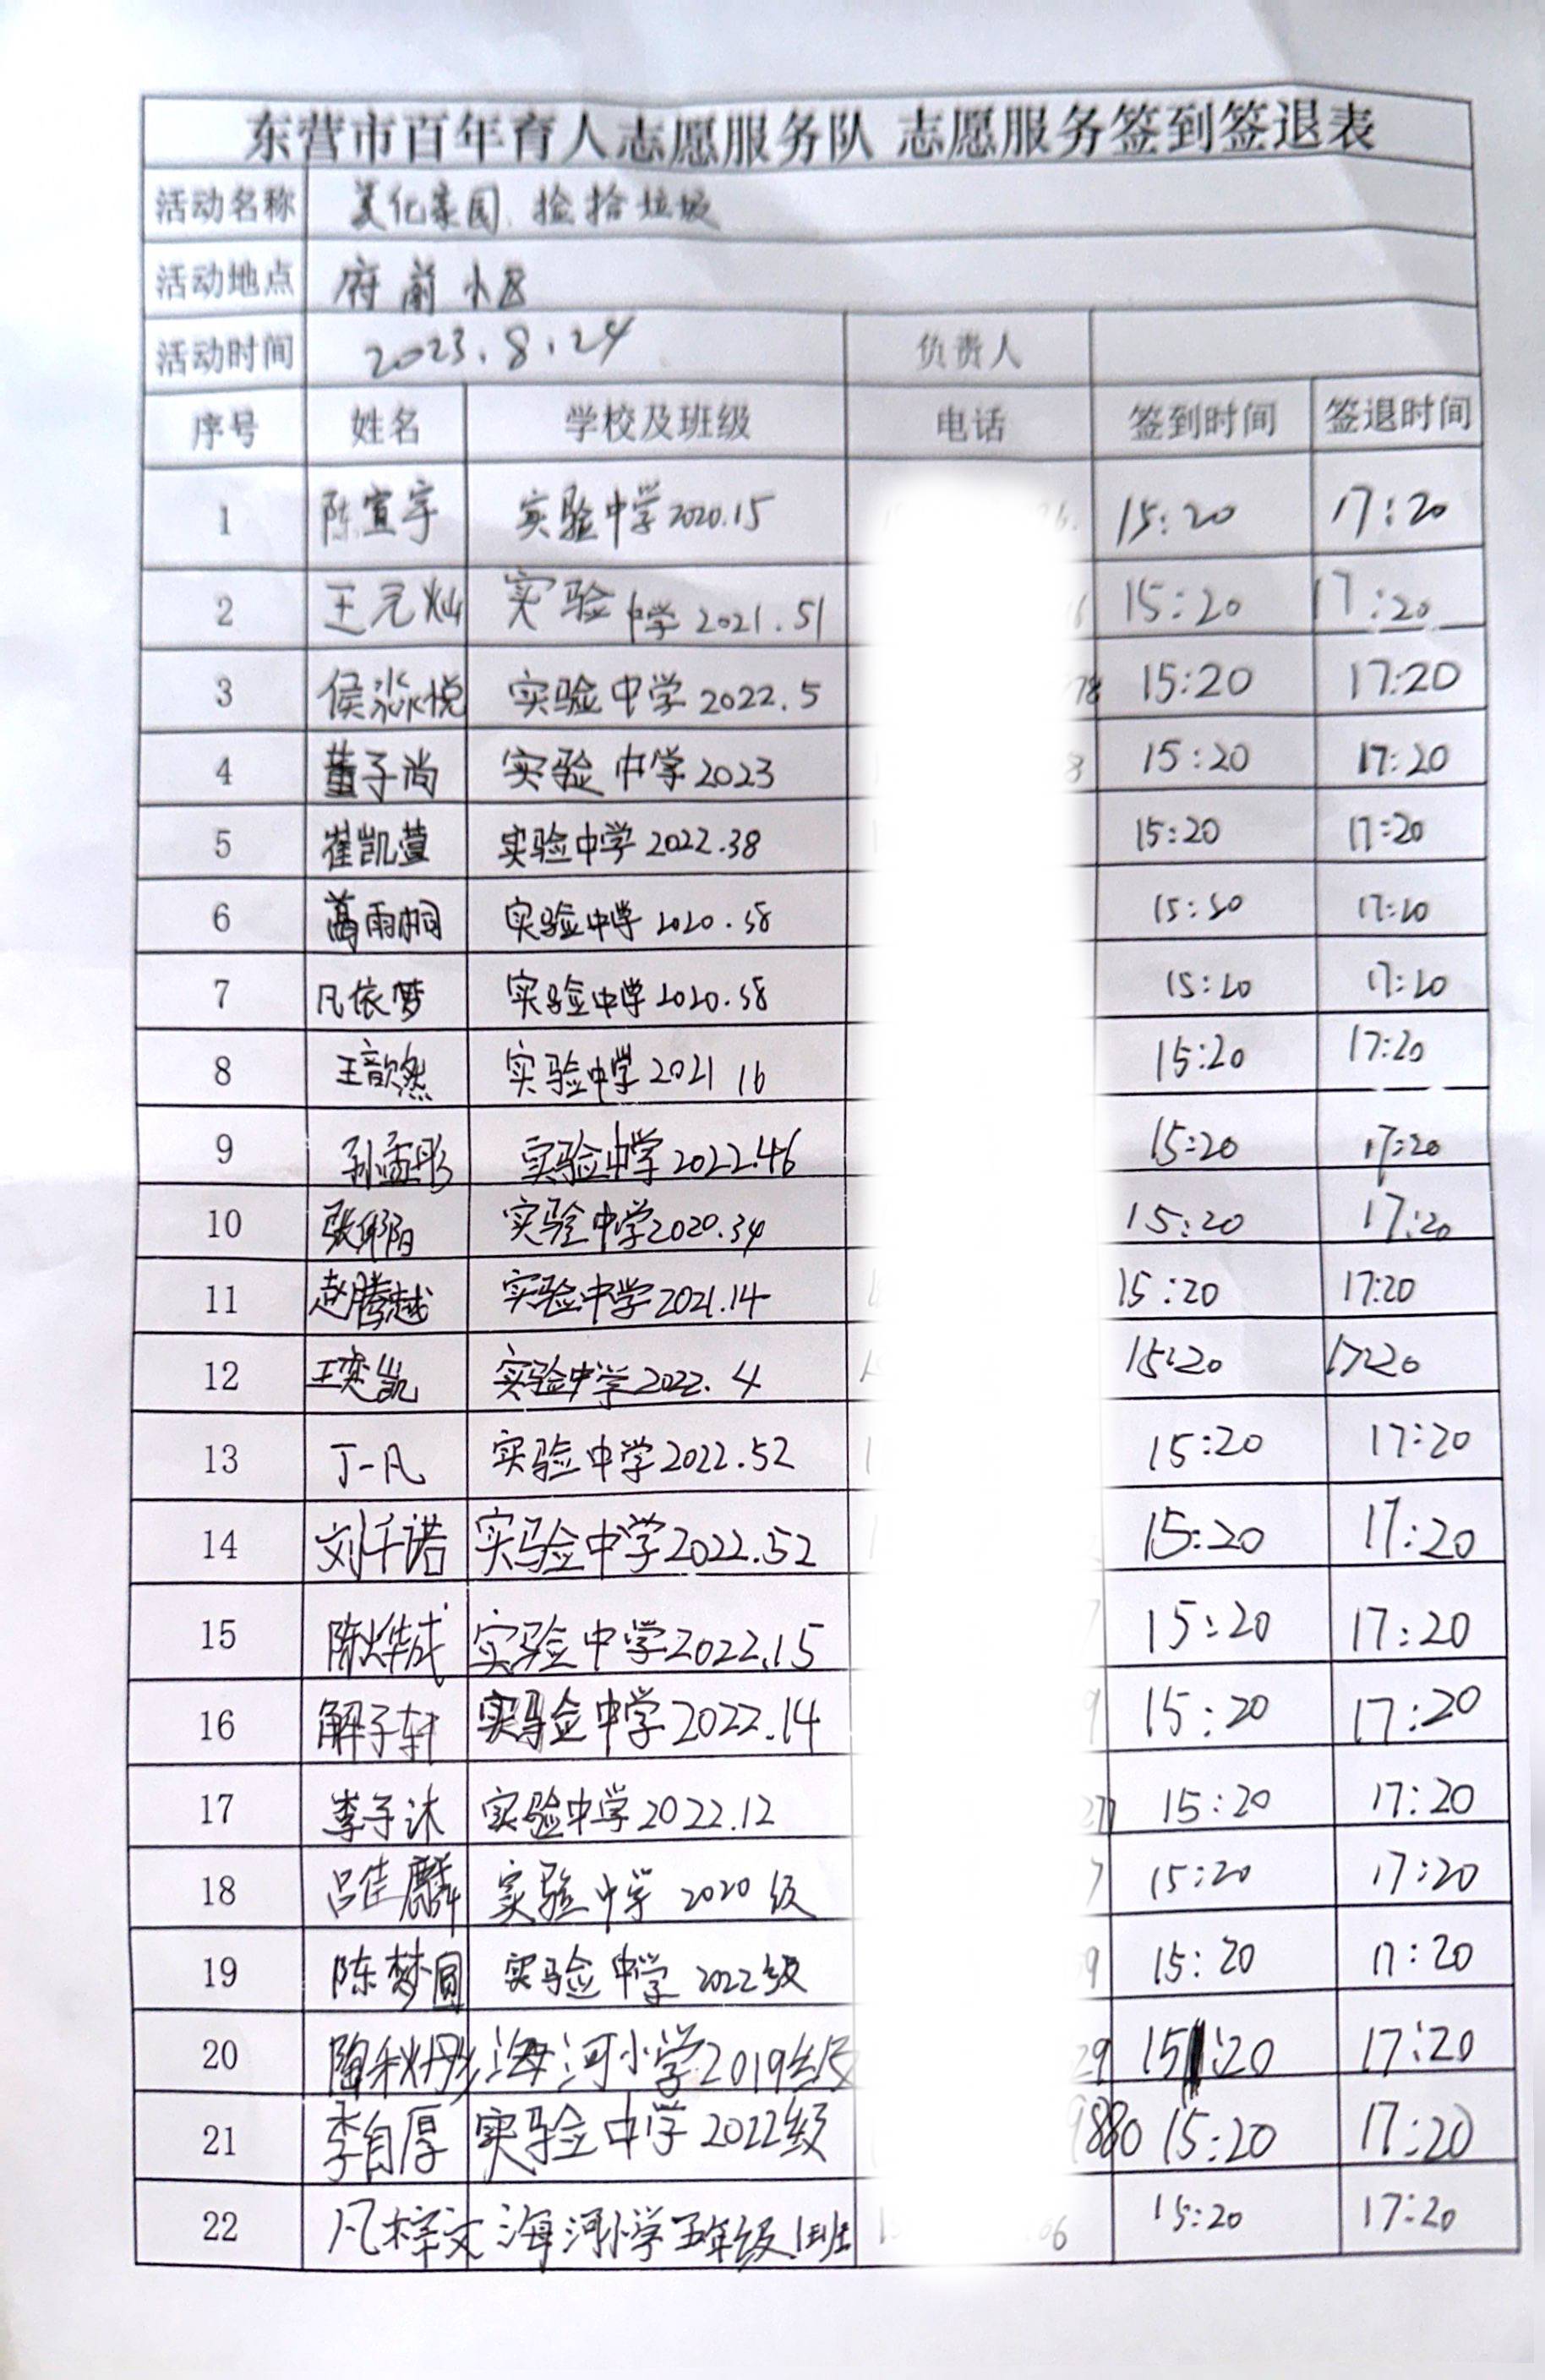 东营市百年育人志愿服务队 志愿服务签到签退表
活动名称 美化家园、捡拾垃圾
活动地点 府前小区
活动时间 2023.8.24 负责人
序号 姓名 学校及班级 电话 签到时间 签退时间
1 陈宣宇 实验中学2020.15 15:20 17:20
2 王元灿 实验中学2021.51 15:20 17:20
3 侯淼悦 实验中学2022.5 78 15:20 17:20
4 董子尚 实验中学2023 8 15:20 17:20
5 崔凯萱 实验中学2022.38 15:20 17:20
6 葛雨桐 实验中学2020.38 15:20 17:20
7 凡依梦 实验中学2020.38 15:20 17:20
8 王歆然 实验中学2021 16 15:20 17:20
9 孙孟彤 实验中学2022.46 15:20 17:20
10 实验中学2020.34 15:20 17:20
11 赵腾越 实验中学2021.14 15:20 17:20
12 王奕凯 实验中学2022.4 15:20 17:20
13 丁一凡 实验中学2022.52 15:20 17:20
14 刘千诺 实验中学2022.52 15:20 17:20
15 陈烨成 实验中学2022.15 15:20 17:20
16 解子轩 实验中学2022.14 9 15:20 17:20
17 李子沐 实验中学2022.12 27 15:20 17:20
18 吕佳麟 实验中学2020级 7 15:20 17:20
19 陈梦圆 实验中学2022级 9 15:20 17:20
20 陶秋彤 海河小学2019级 29 15:20 17:20
21 李自厚 实验中学2022级 9880 15:20 17:20
22 凡梓文 海河小学五年级1班 06 15:20 17:20